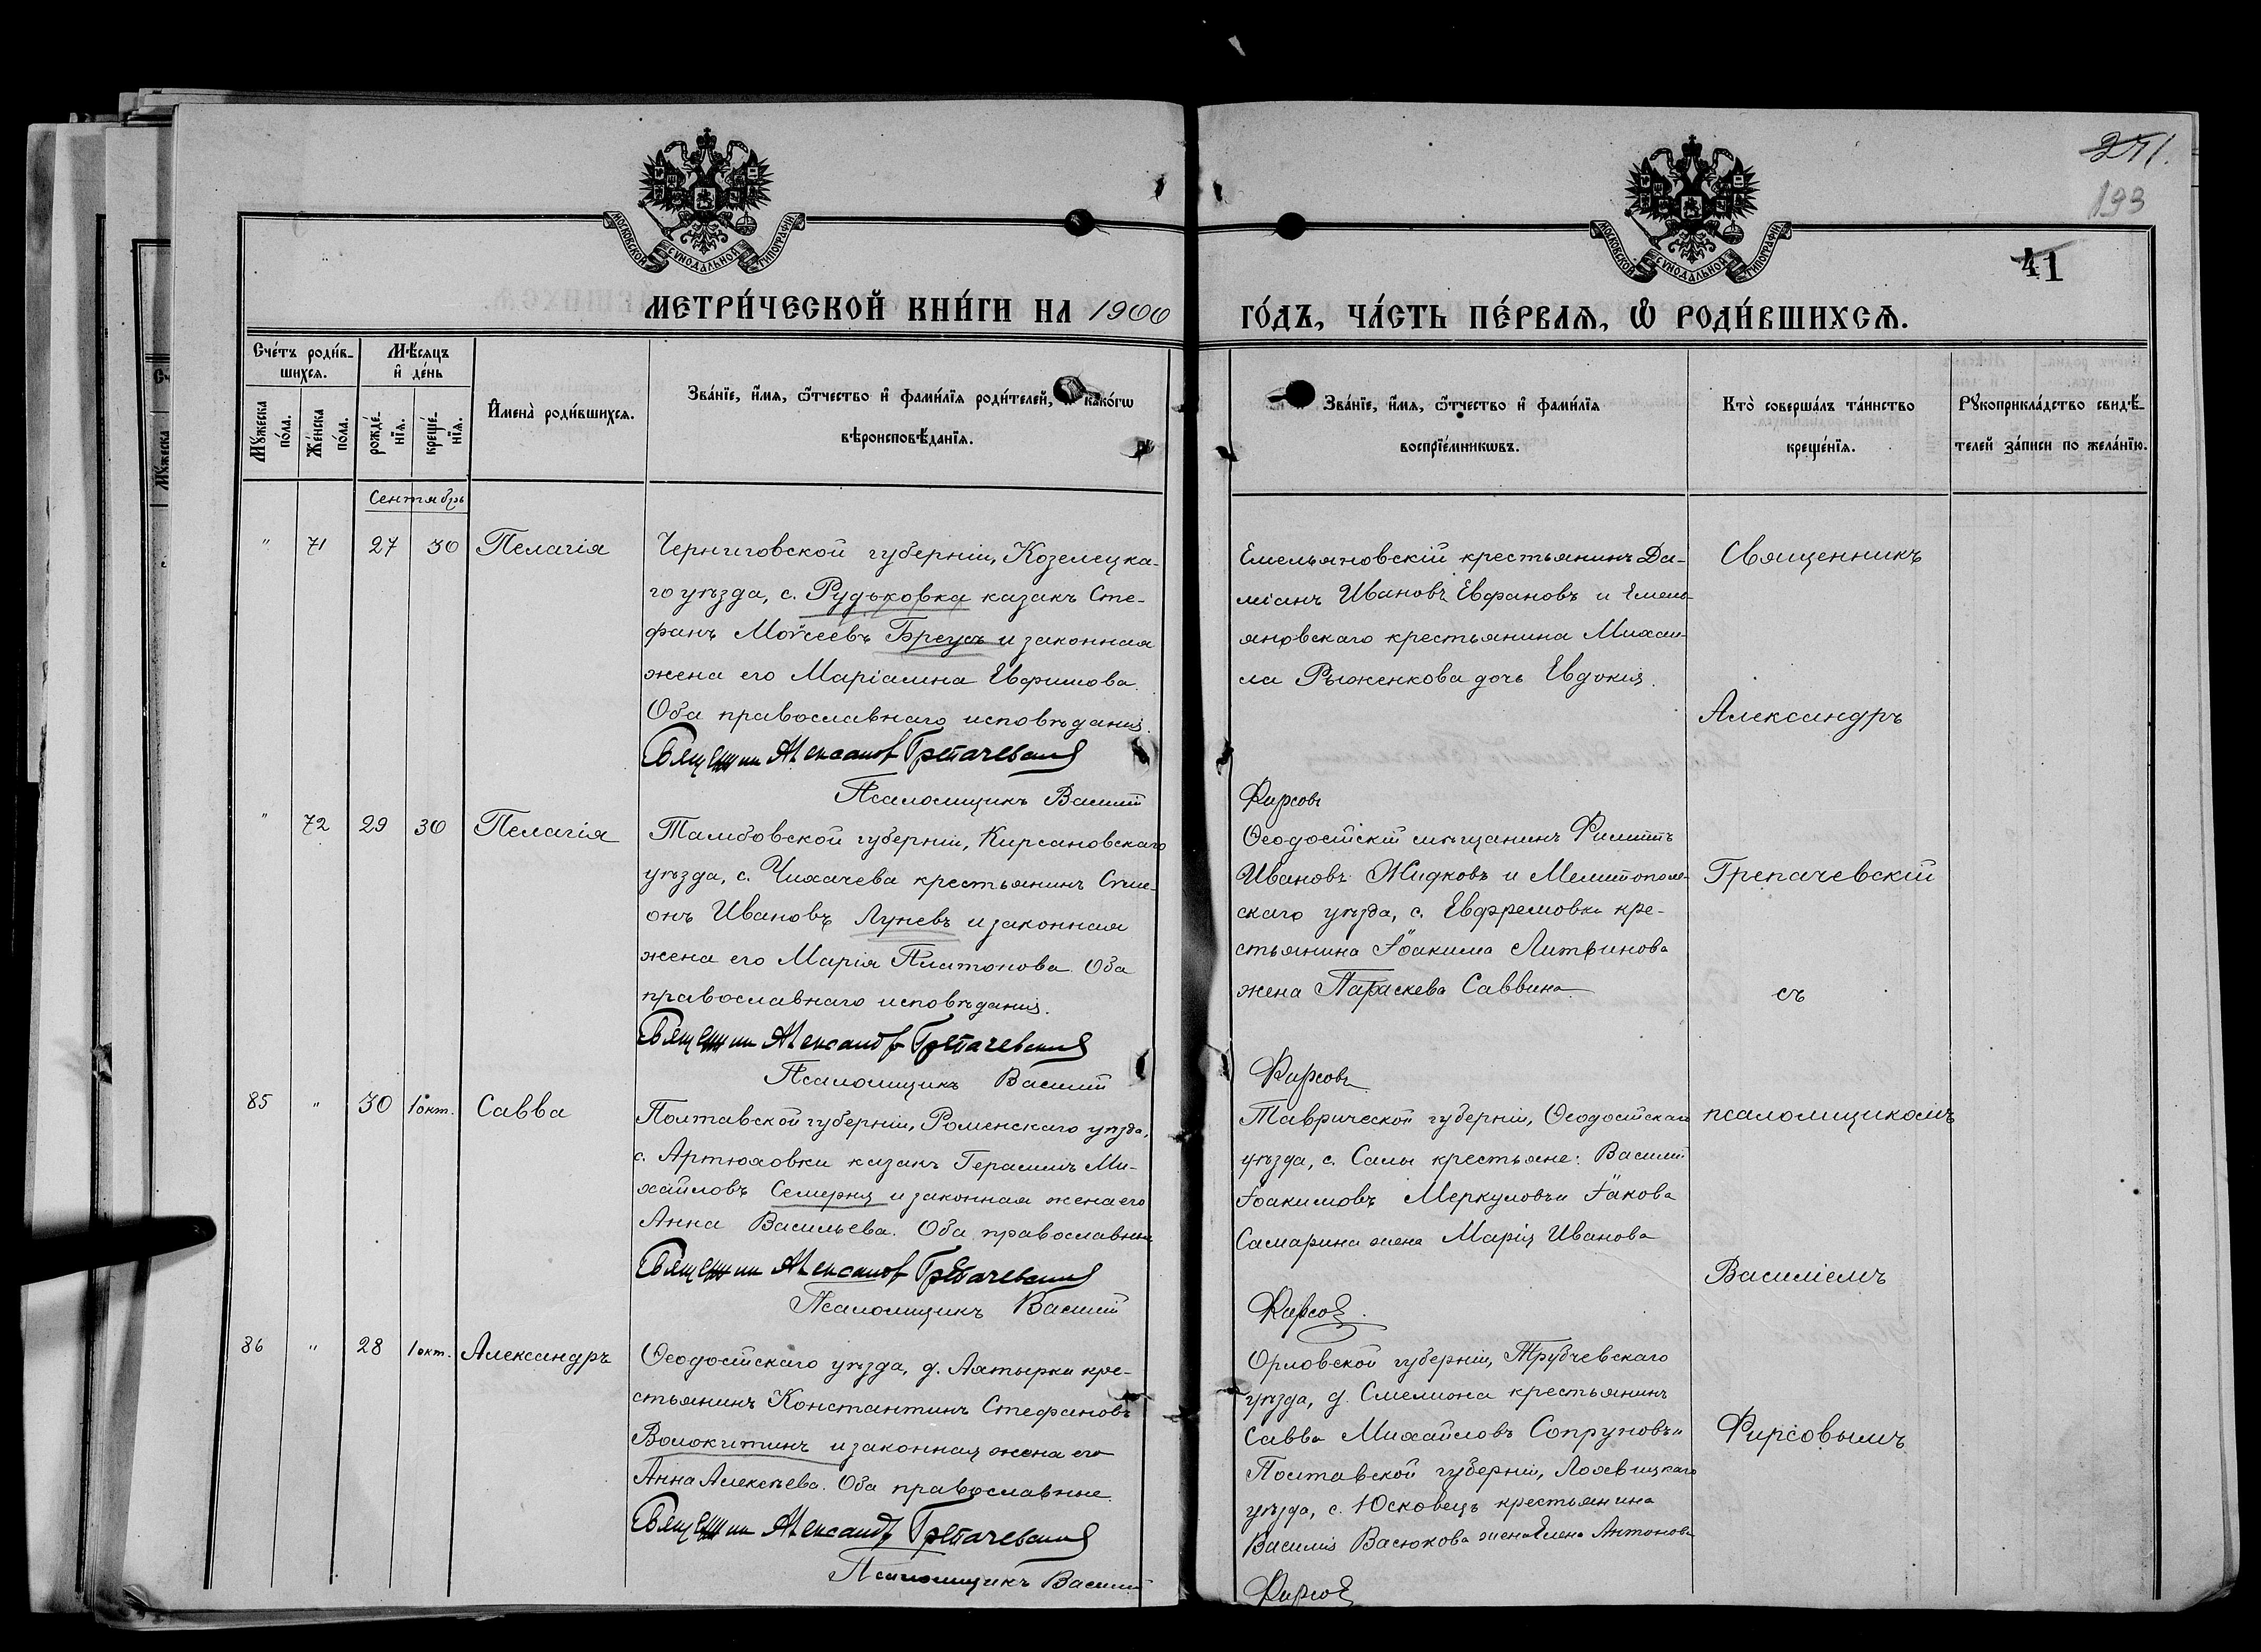 241.
193
41
МОСКОВСКОЙ СѴНОДАЛЬНОЙ ТИПОГРАФІИ
МОСКОВСКОЙ СѴНОДАЛЬНОЙ ТИПОГРАФІИ
МЕТРИ́ЧЕСКОЙ КНИ́ГИ НА 1900 ГО́ДЪ, ЧА́СТЬ ПЕ́РВАѦ, Ѽ РОДИ́ВШИХСѦ.
Сче́тъ роди́в-
шихсѧ.
Мѣ́сѧцъ
и҆ де́нь
Мꙋ́жеска
по́ла.
Же́нска
по́ла.
рожде́-
нїѧ.
креще́-
нїѧ.
И҆мена̀ роди́вшихсѧ.
Зва́нїе, и҆́мѧ, ѻ҆́тчество и҆ фами́лїѧ роди́телей, и҆ како́гѡ
вѣроисповѣ́данїѧ.
Зва́нїе, и҆́мѧ, ѻ҆́тчество и҆ фами́лїѧ
воспрїе́мникѡвъ.
Кто̀ соверша́лъ та́инство
креще́нїѧ.
Рꙋкоприкла́дство свидѣ́-
телей за́писи по жела́нїю.
Сентябрь
" 71 27 30 Пелагія
Черниговской губерніи, Козелецка-
го уѣзда, с. Рудьковка казакъ Сте-
фанъ Моѵсеевъ Бреусъ и законная
жена его Маріамна Евфимова.
Оба православнаго исповѣданія.
Священникъ Александръ Грепачевскій
Псаломщикъ Василій Фирсовъ
Емельяновскій крестьянинъ Да-
міанъ Ивановъ Евфановъ и Емель-
яновскаго крестьянина Михаи-
ла Рыженкова дочь Евдокія.
Священникъ
Александръ
Грепачевскій
съ
псаломщикомъ
Василіемъ
Фирсовымъ
" 72 29 30 Пелагія
Тамбовской губерніи, Кирсановскаго
уѣзда, с. Чихачева крестьянинъ Сѵме-
онъ Ивановъ Луневъ и законная
жена его Марія Платонова. Оба
православнаго исповѣданія.
Священникъ Александръ Грепачевскій
Псаломщикъ Василій Фирсовъ
Ѳеодосійскій мѣщанинъ Филиппъ
Ивановъ Жидковъ и Мелитополь-
скаго уѣзда, с. Ефремовки кре-
стьянина Іоакима Литвинова
жена Параскева Саввина.
85 " 30 1 окт. Савва
Полтавской губерніи, Роменскаго уѣзда,
с. Артюховки казакъ Герасимъ Ми-
хайловъ Семерня и законная жена его
Анна Васильева. Оба православные
Священникъ Александръ Грепачевскій
Псаломщикъ Василій Фирсовъ
Таврической губерніи, Ѳеодосійскаго
уѣзда, с. Салы крестьяне: Василій
Іоакимовъ Меркуловъ и Іакова
Самарина жена Марія Иванова
86 " 28 1 окт. Александръ
Ѳеодосійскаго уѣзда, д. Ахтырки кре-
стьянинъ Константинъ Стефановъ
Волокитинъ и законная жена его
Анна Алексѣева. Оба православные.
Священникъ Александръ Грепачевскій
Псаломщикъ Василій Фирсовъ
Орловской губерніи, Трубчевскаго
уѣзда, д. Смелиона крестьянинъ
Савва Михайловъ Сопруновъ и
Полтавской губерніи, Лохвицкаго
уѣзда, с. Юсковецъ крестьянина
Василія Васюкова жена Елена Антонова